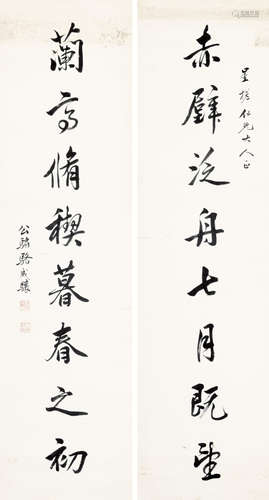 仁兄大人正
赤壁泛舟七月既望
蘭亭脩禊暮春之初
公驌駱成驤